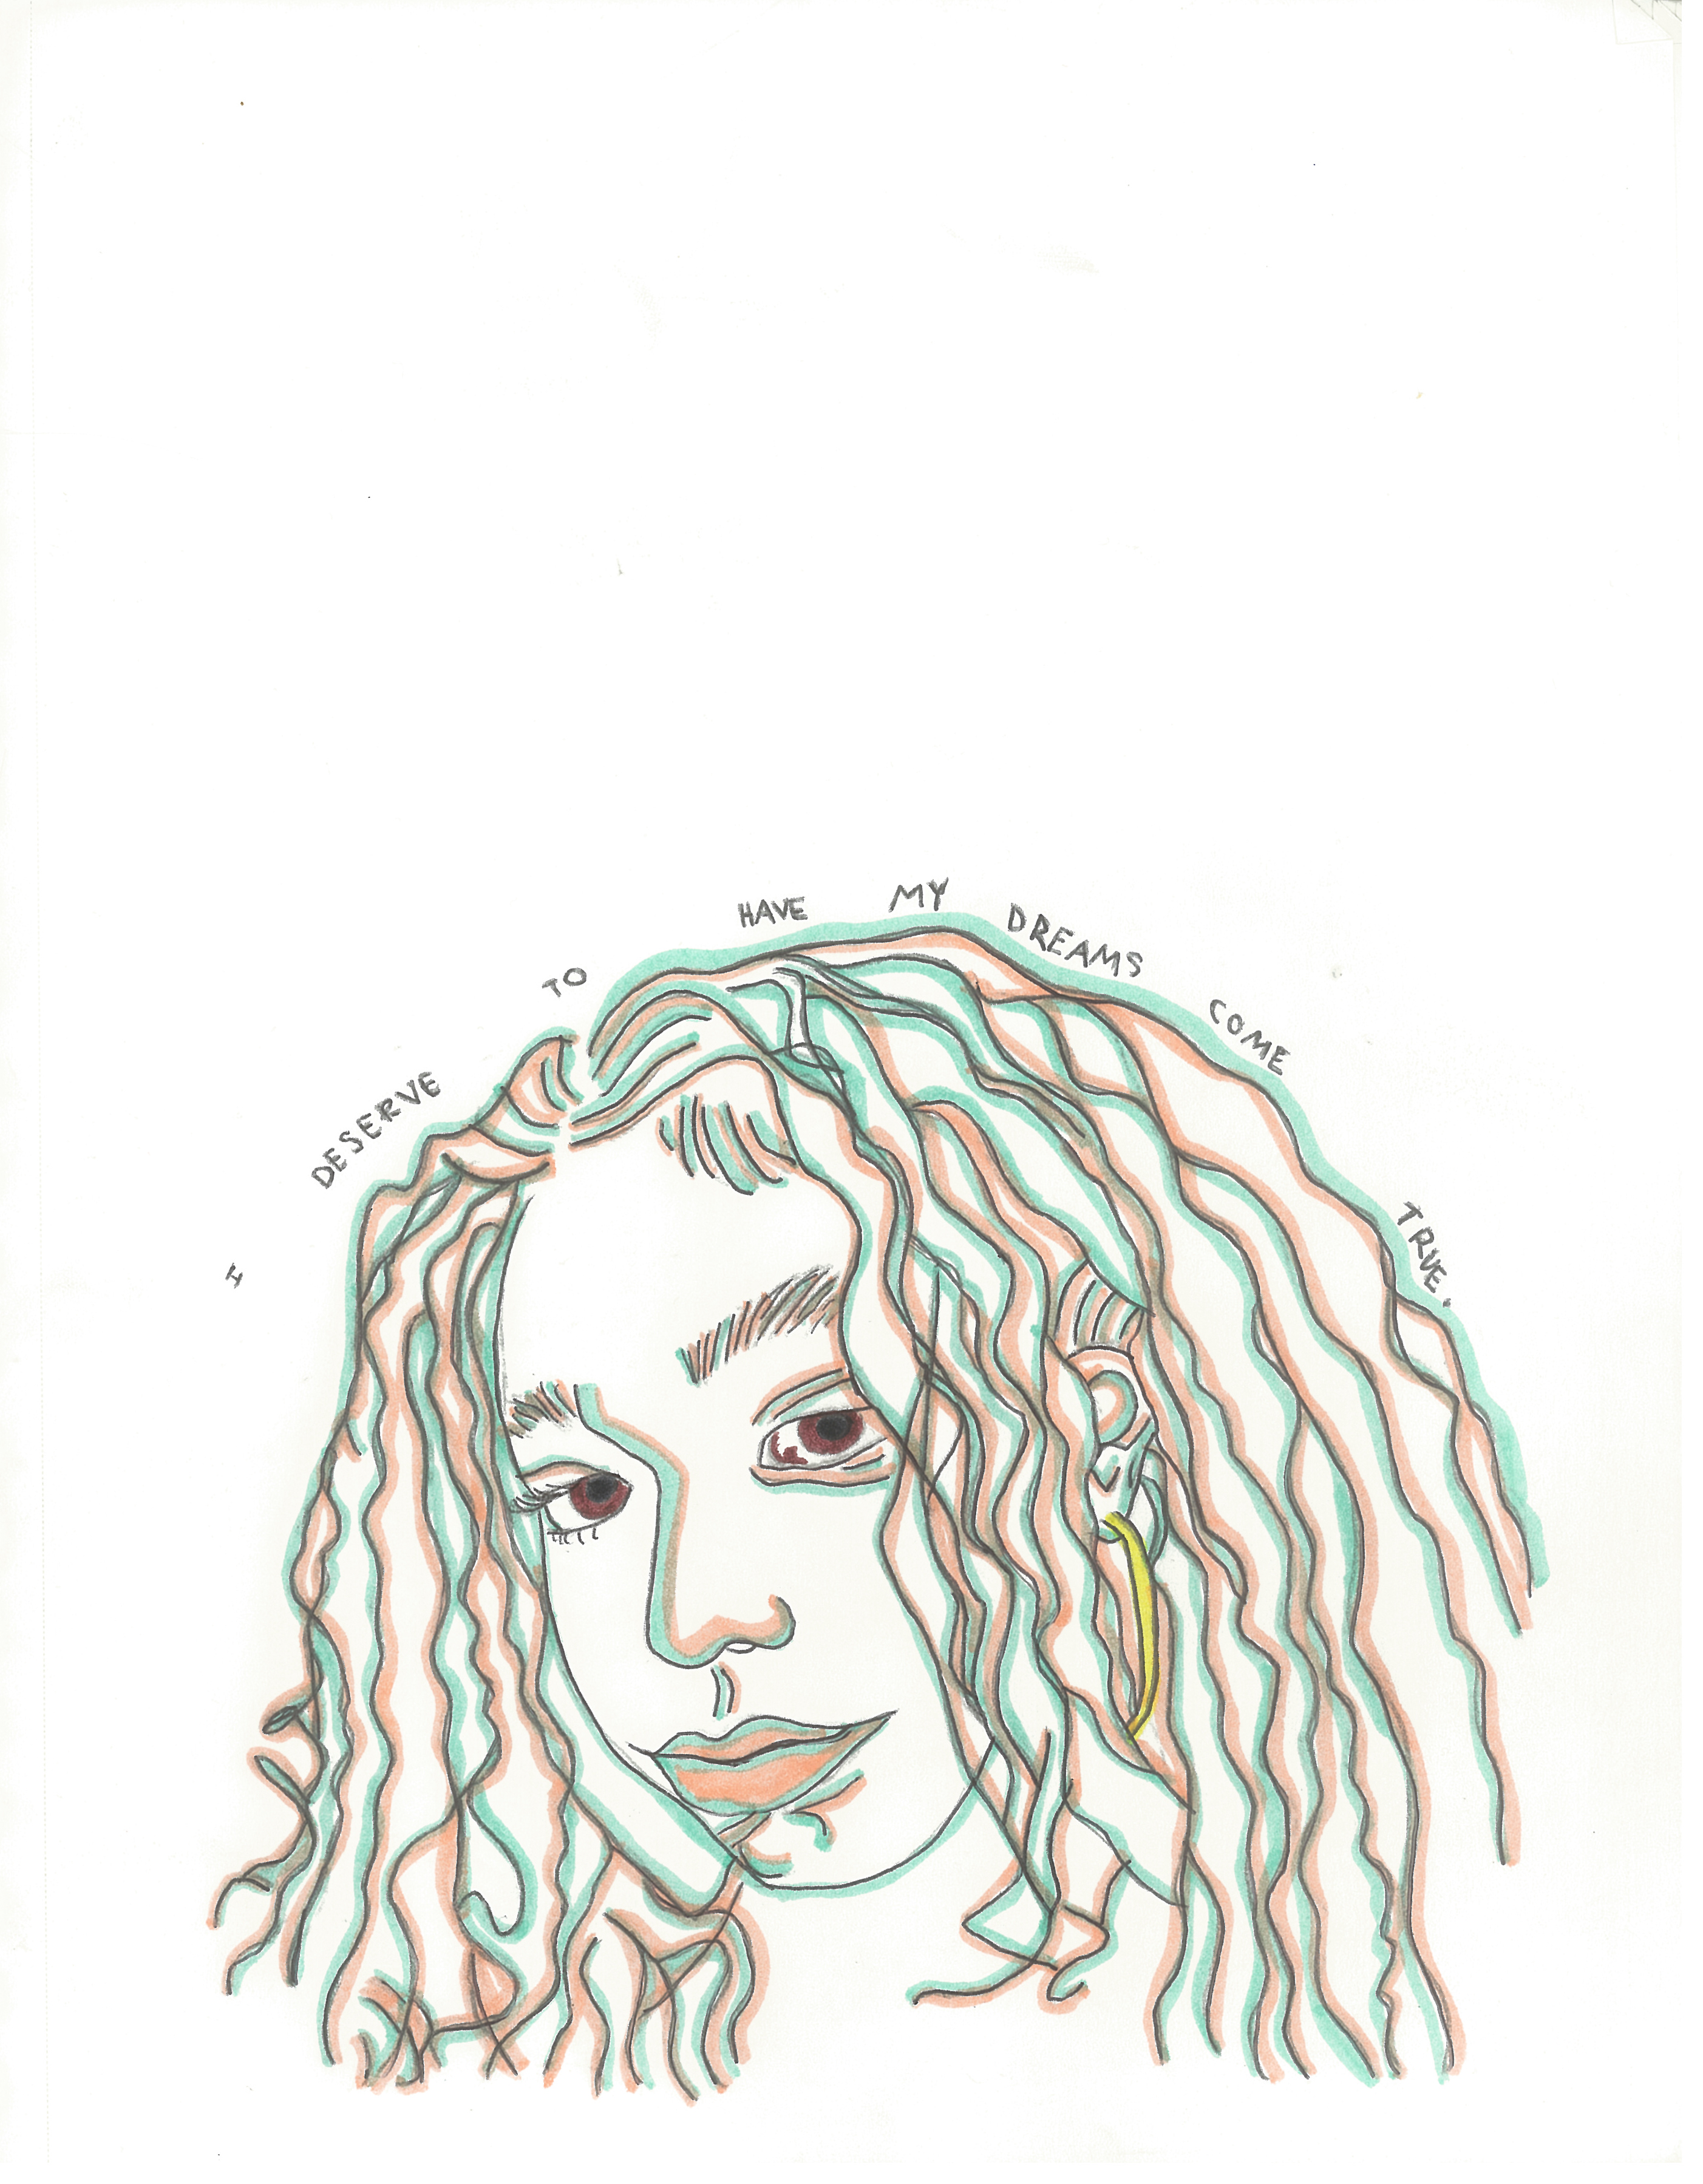 I DESERVE TO HAVE MY DREAMS COME TRUE.